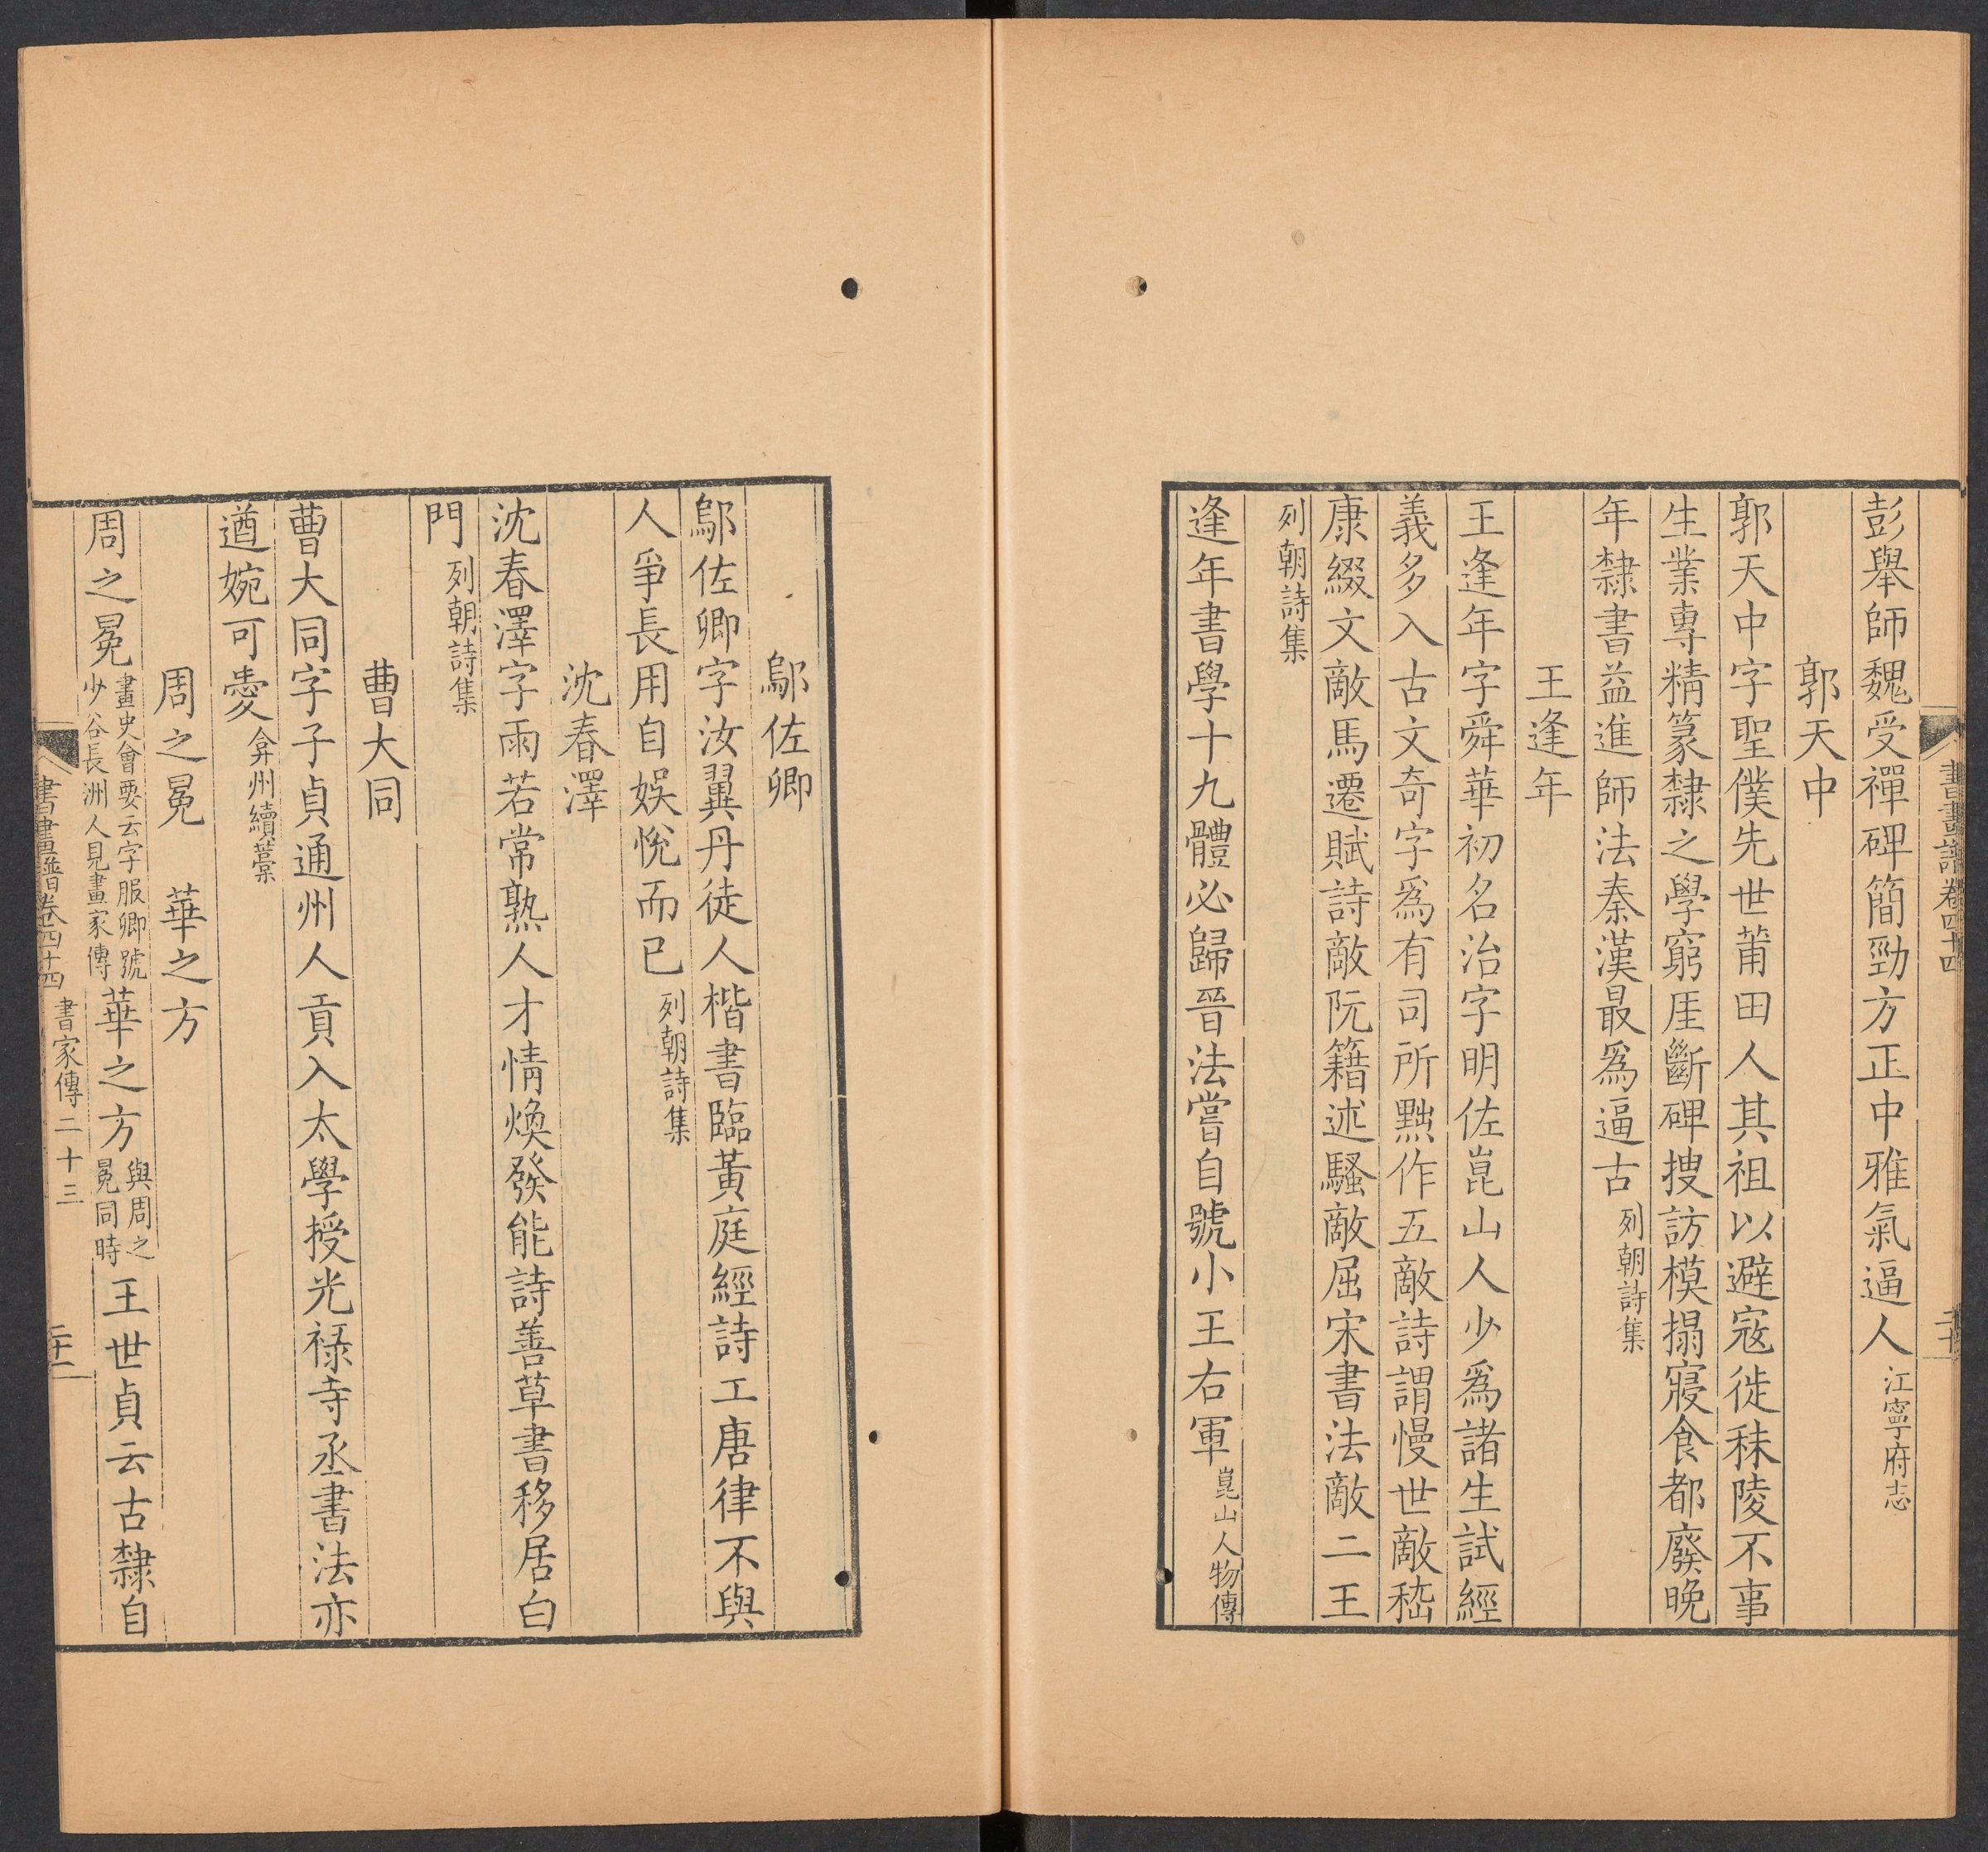 彭舉師魏受禪碑簡勁方正中雅氣逼人江寧府志
郭天中
郭天中字聖僕先世莆田人其祖以避寇徙秣陵不事
生業專精篆隸之學窮厓斷碑搜訪模搨寢食都廢晚
年隸書益進師法秦漢最爲逼古列朝詩集
王逢年
王逢年字舜華初名治字明佐崑山人少爲諸生試經
義多入古文奇字爲有司所黜作五敵詩謂慢世敵嵇
康綴文敵馬遷賦詩敵阮籍述騷敵屈宋書法敵二王
列朝詩集
逢年書學十九體必歸晉法嘗自號小王右軍崑山人物傳
鄔佐卿
鄔佐卿字汝翼丹徒人楷書臨黃庭經詩工唐律不與
人爭長用自娛悅而已列朝詩集
沈春澤
沈春澤字雨若常熟人才情煥發能詩善草書移居白
門列朝詩集
曹大同
曹大同字子貞通州人貢入太學授光祿寺丞書法亦
遒婉可愛弇州續藁
周之冕 華之方
周之冕畫史會要云字服卿號少谷長洲人見畫家傳華之方與周之冕同時王世貞云古隸自
書畫譜卷四十四 書家傳二十三